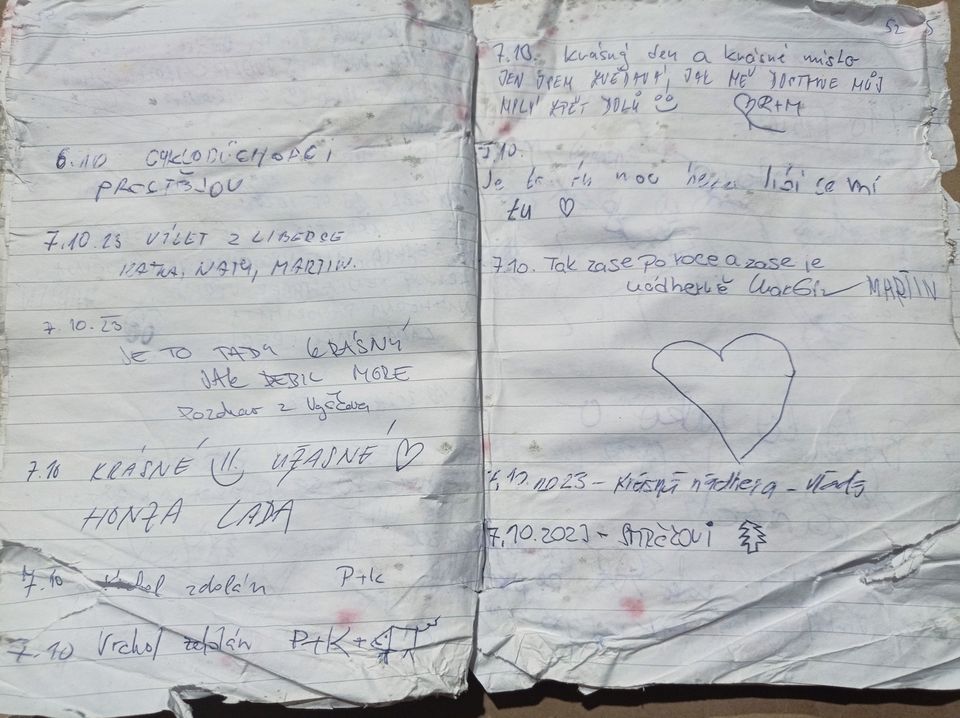 6.10 CYKLODŮCHODCI
PROSTĚJOV
7.10.23 VÍLET Z LIBERCE
KAŤKA, NATY, MARTIN.
7.10.23
JE TO TADY KRÁSNÝ
JAK DEBIL MORE
Pozdrav z
7.10 KRÁSNÉ !! UŽASNÉ ♡
HONZA LADA
7.10 Vrchol zdolán P+K
7.10 Vrchol zdolán P+K+
52 5
7.10. krásný den a krásné místo
JEN JSEM ZVĚDAVÁ, JAK MĚ DOSTANE MŮJ
MILÝ ZPĚT DOLŮ ♡R+M
7.10.
Je moc líbí se mi
tu ♡
7.10. Tak zase po roce a zase je
nádherně Martin MARTIN
7.10.2023 - krásná nádhera - Vláďa
7.10.2023 -